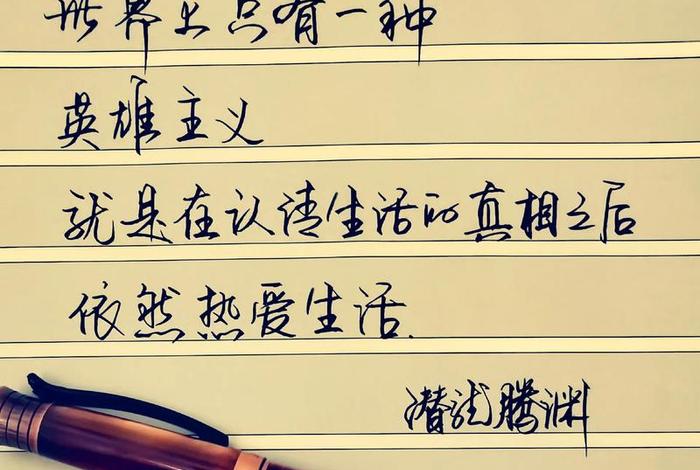 世界上只有一种
英雄主义
就是在认清生活的真相之后
依然热爱生活.
潜龙腾渊